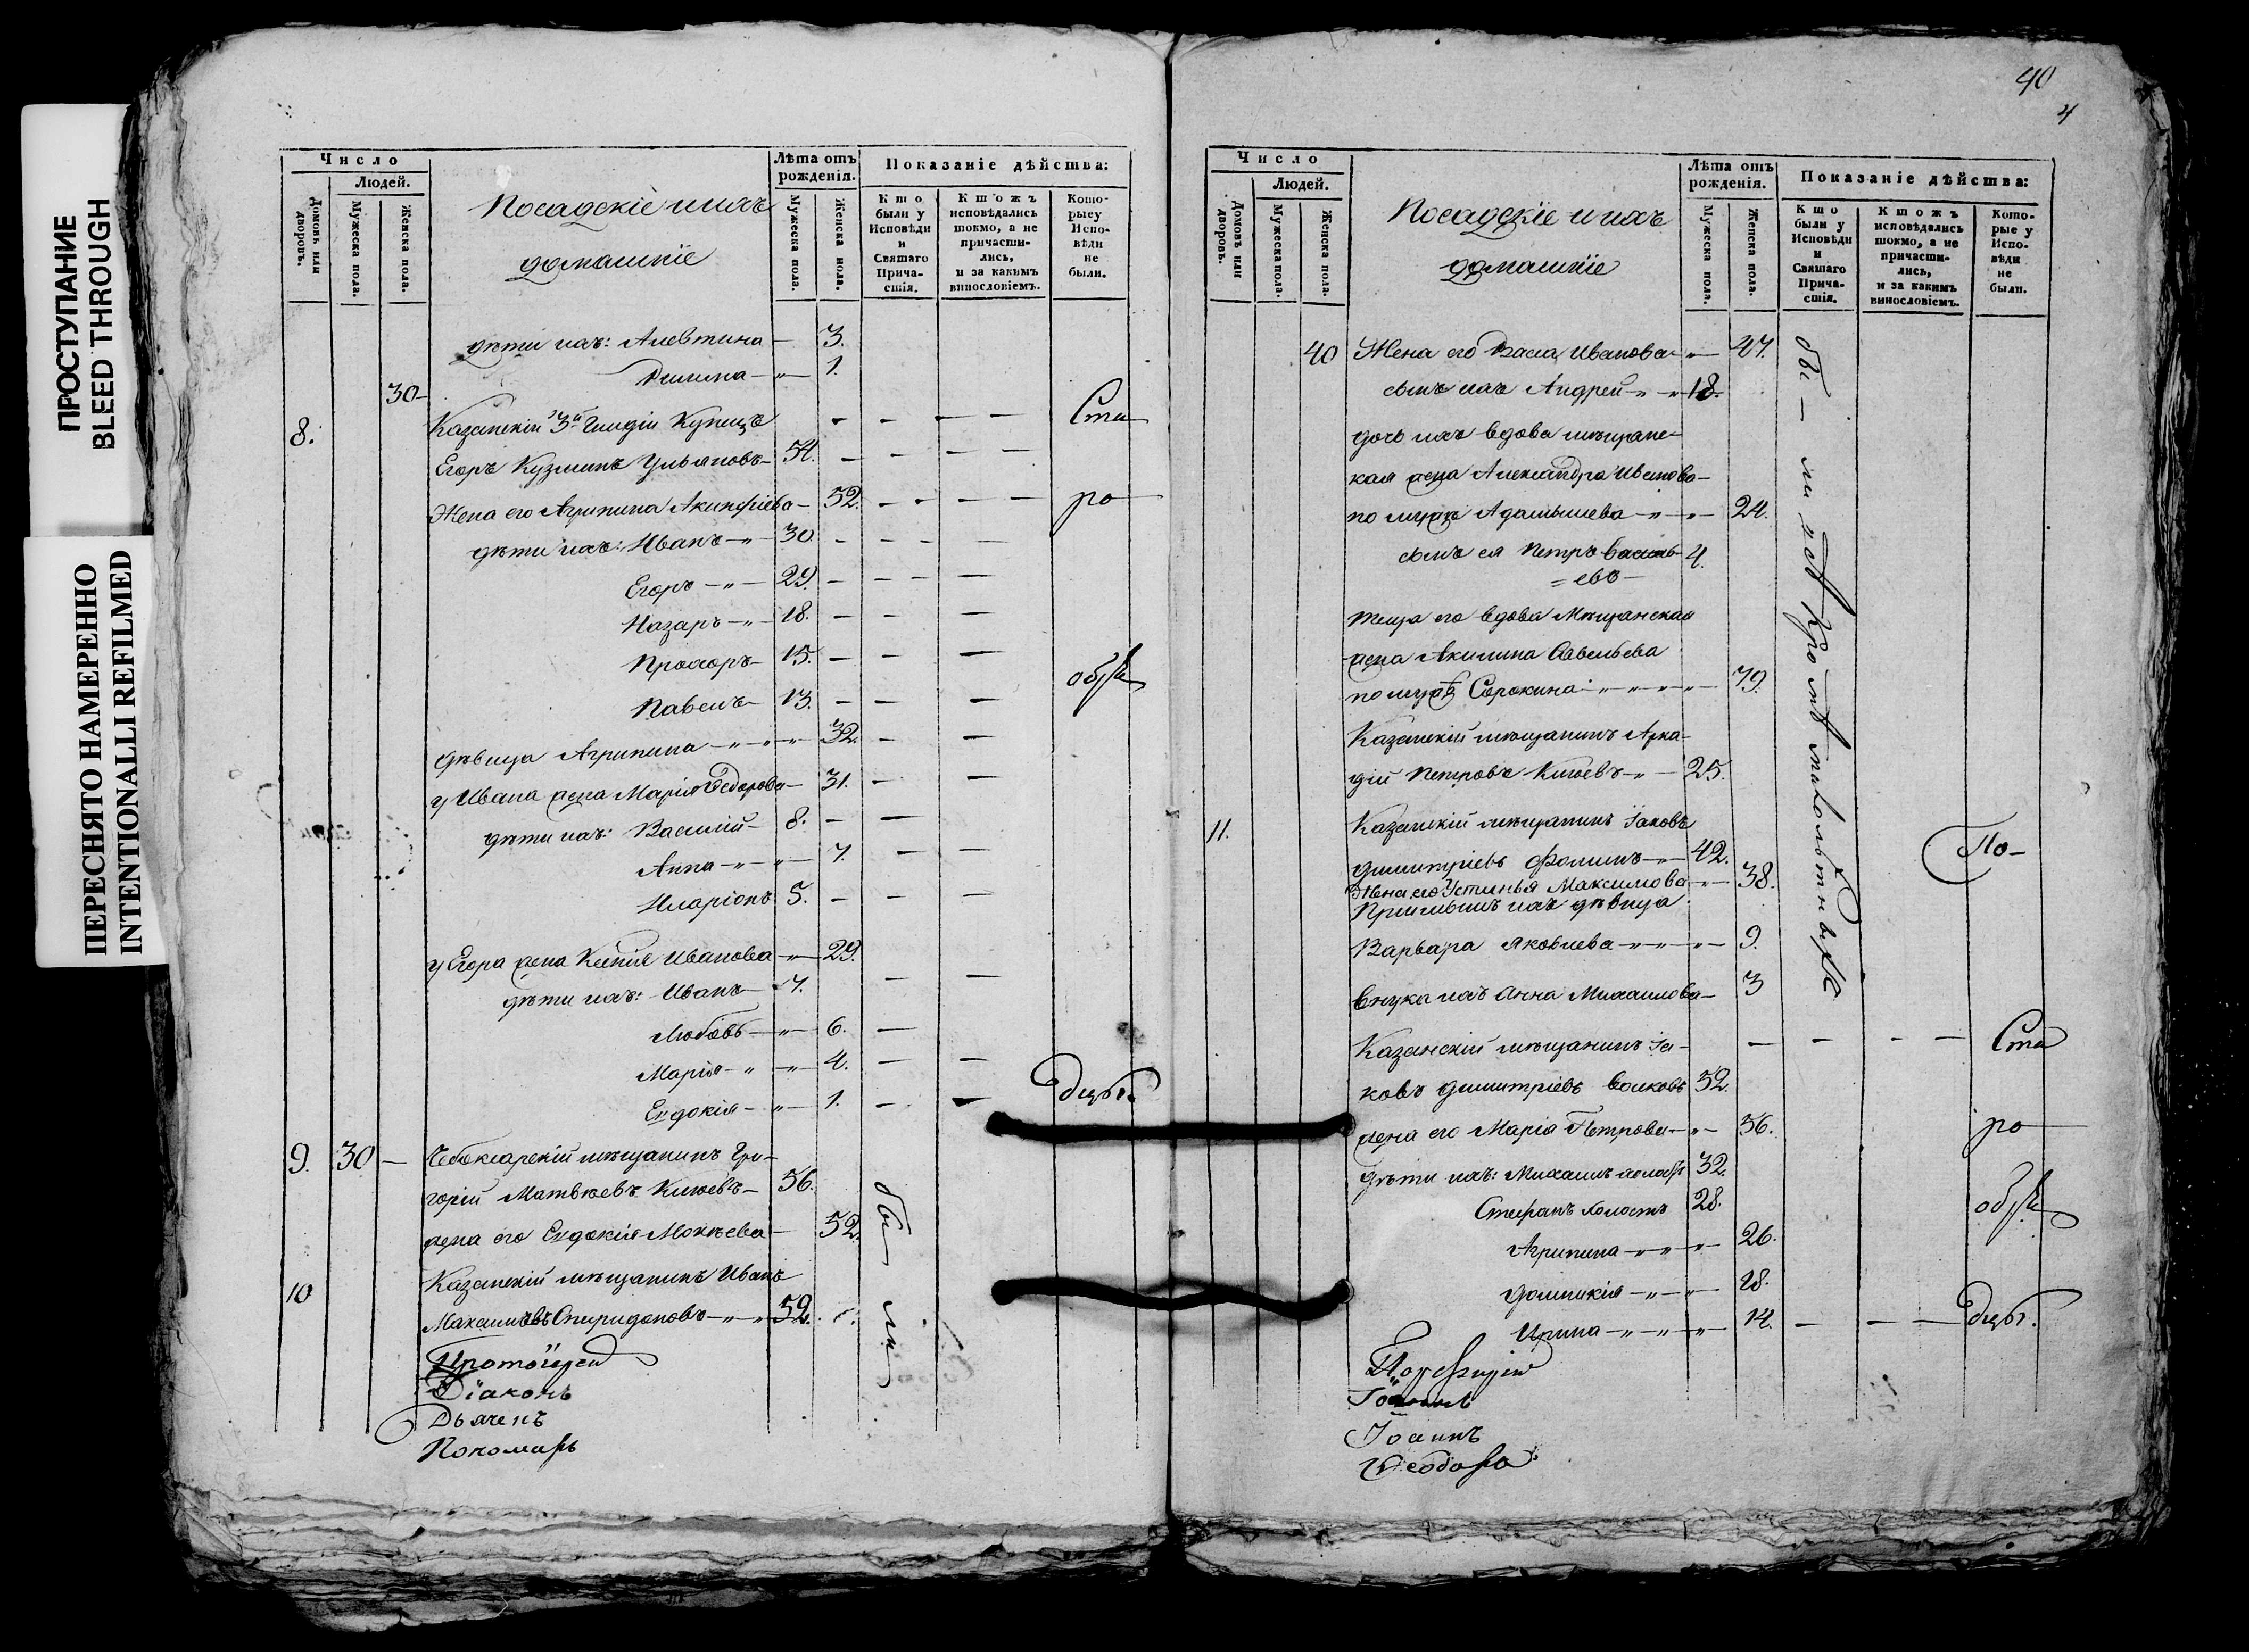 ПРОСТУПАНИЕ
BLEED THROUGH
ПЕРЕСНЯТО НАМЕРЕННО
INTENTIONALLI REFILMED
Число
Людей.
Домовъ или дворовъ.
Мужеска пола.
Женска пола.
Посадскіе и ихъ
домашніе
Лѣта отъ рожденія.
Мужеска пола.
Женска пола.
Показаніе дѣйства:
Кто были у Исповѣди и Святаго Причастія.
Ктожъ исповѣдались токмо, а не причастились, и за какимъ винословіемъ.
Которыеу Исповѣди не были.
дѣти ихъ: Алевтина — 3.
— „ — 1.
30 —
8. Казанскій 3й Гильдіи Купецъ — — — — Ста
Егоръ Кузминъ Ульяновъ — 54. — — — —
Жена его Агрипина Акинфіева — 52. — — — — ро
дѣти ихъ: Иванъ — „ — 30. — — — —
Егоръ — „ — 29. — — — —
Назаръ — „ — 18. — — —
Прохоръ — 15. — — — обря
Павелъ — 13. — — —
дѣвица Агрипина — „ — „ — 32. — —
у Ивана жена Марія Ѳедорова — 31. — —
дѣти ихъ: Василій — 8. — —
Анна — „ — „ — 7. — —
Иларіонъ 5. — — —
у Егора жена Ксенія Иванова — „ — 29.
дѣти ихъ: Иванъ — 7. — —
Любовь — „ — 6. —
Марія — „ — „ — 4. — —
Евдокія — „ — 1. — — дцы.
9. 30 — Чебоксарскій мѣщанинъ Гри-
горій Матвѣевъ Китаевъ — 56.
жена его Евдокія Мокѣева — 52.
10 Казанскій мѣщанинъ Иванъ
Максимовъ Спиридоновъ — „ — „ 52.
бы ли
Протоіерей
Діаконъ
Дьячекъ
Пономарь
40
4
Число
Людей.
Домовъ или дворовъ.
Мужеска пола.
Женска пола.
Посадскіе и ихъ
домашніе
Лѣта отъ рожденія.
Мужеска пола.
Женска пола.
Показаніе дѣйства:
Кто были у Исповѣди и Святаго Причастія.
Ктожъ исповѣдались токмо, а не причастились, и за какимъ винословіемъ.
Которые у Исповѣди не были.
40 Жена его Васса Иванова — „ — 47.
сынъ ихъ Андрей — „ — „ 18.
дочь ихъ вдова мѣщанс-
кая жена Александра Иванова —
по мужѣ Адамышева — „ — „ — 24.
сынъ ея Петръ Василь- 4.
= евъ —
теща его вдова Мѣщанская
жена Акилина Савельева
по мужѣ Сорокина — „ — „ — „ — „ — 79.
Казанскій мѣщанинъ Арка-
дій Петровъ Китаевъ — „ — 25.
11. Казанскій мѣщанинъ Іаковъ
Димитріевъ Фоминъ — „ — 42.
Жена его Устинья Максимова — „ — 38. По-
дѣвица
Варвара Яковлева — „ — „ — „ — 9.
внука ихъ Анна Михаилова — 3
Казанскій мѣщанинъ Іа- — — — — Ста
ковъ Димитріевъ Волковъ 52.
жена его Марія Петрова — „ — 56. ро
дѣти ихъ: Михаилъ 32.
Стефанъ холостъ 28. обря
Агрипина — „ — „ — „ — 26.
Домникія — „ — „ — 18.
Ирина — „ — „ — „ — 14. — — — дцы.
бы — ли
Порфирій
Іоаннъ
Іоаннъ
Ѳеодоръ